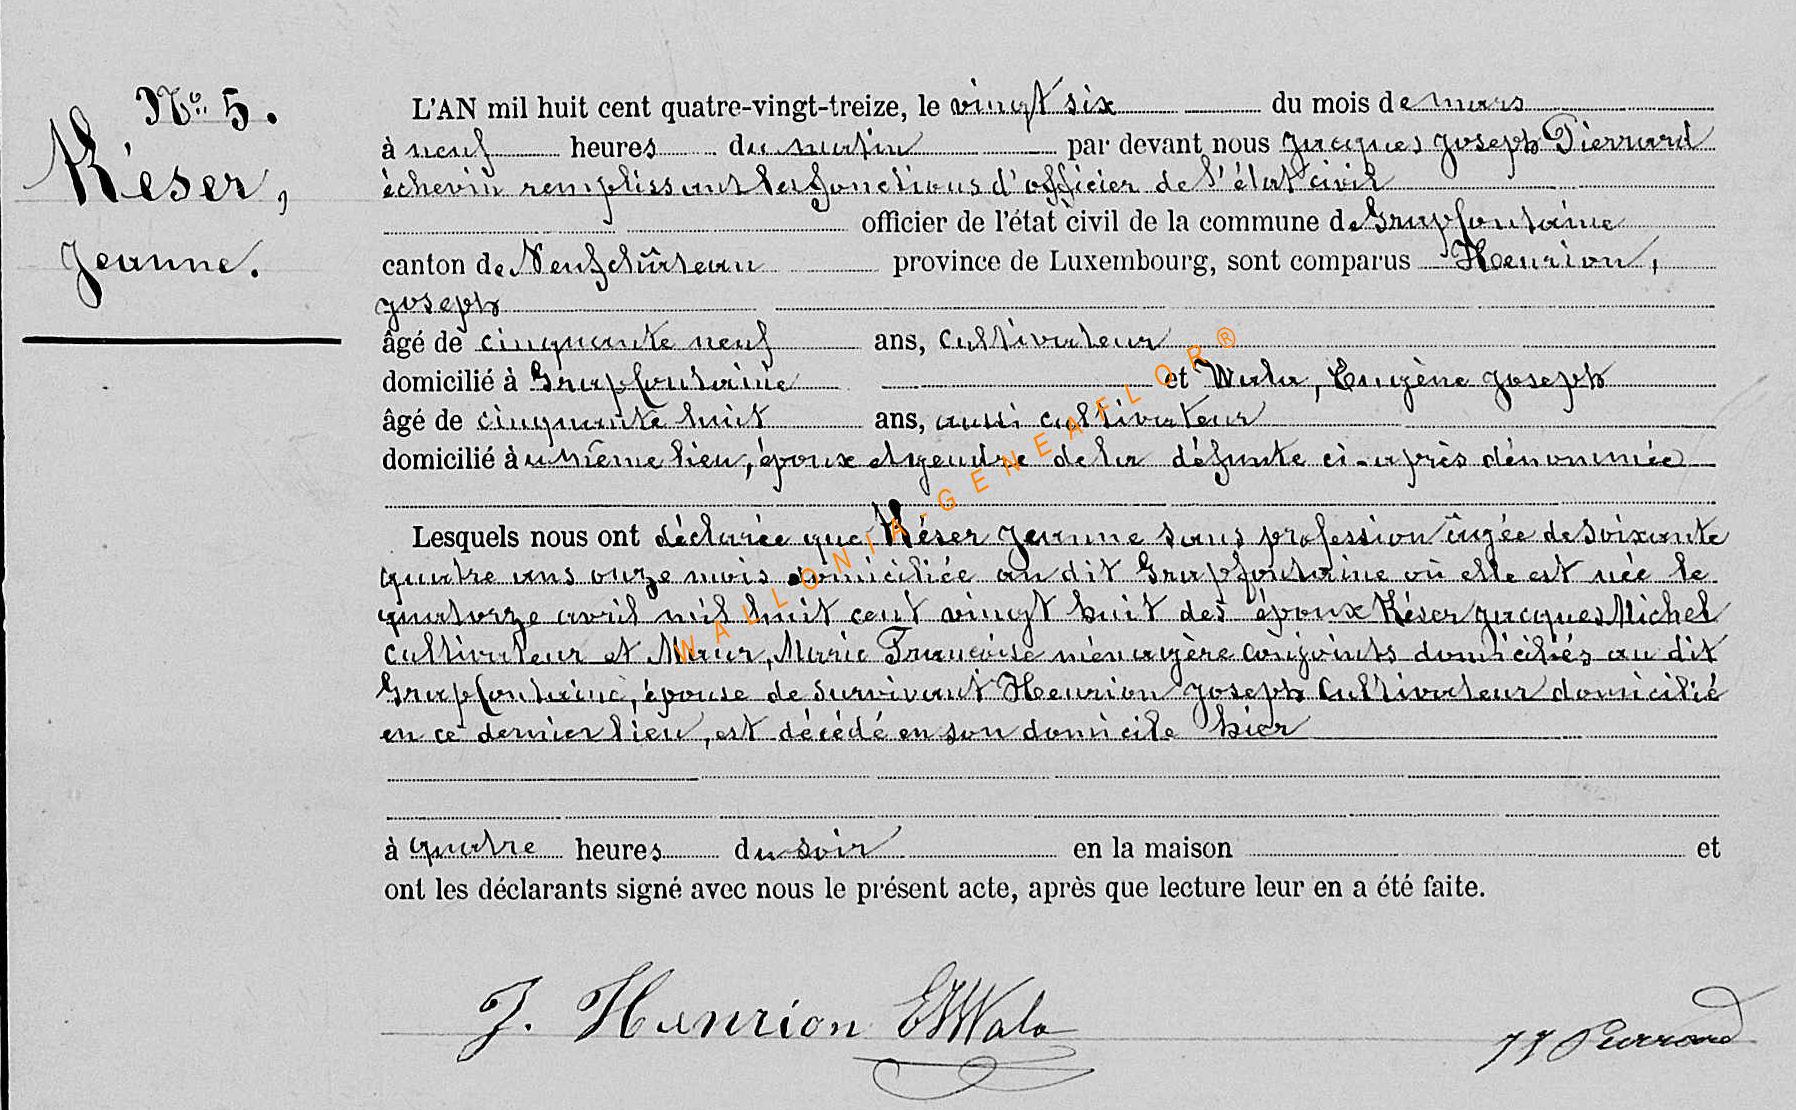 No. 5.
Késer,
Jeanne.
L'AN mil huit cent quatre-vingt-treize, le vingt six du mois de mars
à neuf heures du matin par devant nous Jacques Joseph Pierrard
échevin remplissant les fonctions d'officier de l'état civil
officier de l'état civil de la commune de Grapfontaine
canton de Neufchâteau province de Luxembourg, sont comparus Henrion,
Joseph
âgé de cinquante neuf ans, cultivateur
domicilié à Grapfontaine et Wala, Eugène Joseph
âgé de cinquante huit ans, aussi cultivateur
domicilié au même lieu, époux et gendre de la défunte ci-après dénommée
Lesquels nous ont déclarée que Késer Jeanne sans profession âgée de soixante
quatre ans onze mois domiciliée au dit Grapfontaine où elle est née le
quatorze avril mil huit cent vingt huit des époux Késer Jacques Michel
cultivateur et Marie Françoise ménagère conjoints domiciliés au dit
Grapfontaine, épouse de survivant Henrion Joseph Cultivateur domicilié
en ce dernier lieu, est décédé en son domicile hier
à quatre heures du soir en la maison et
ont les déclarants signé avec nous le présent acte, après que lecture leur en a été faite.
J. Henrion EJWala JJ Pierrard
WALLONIA-GENEAFLOR®